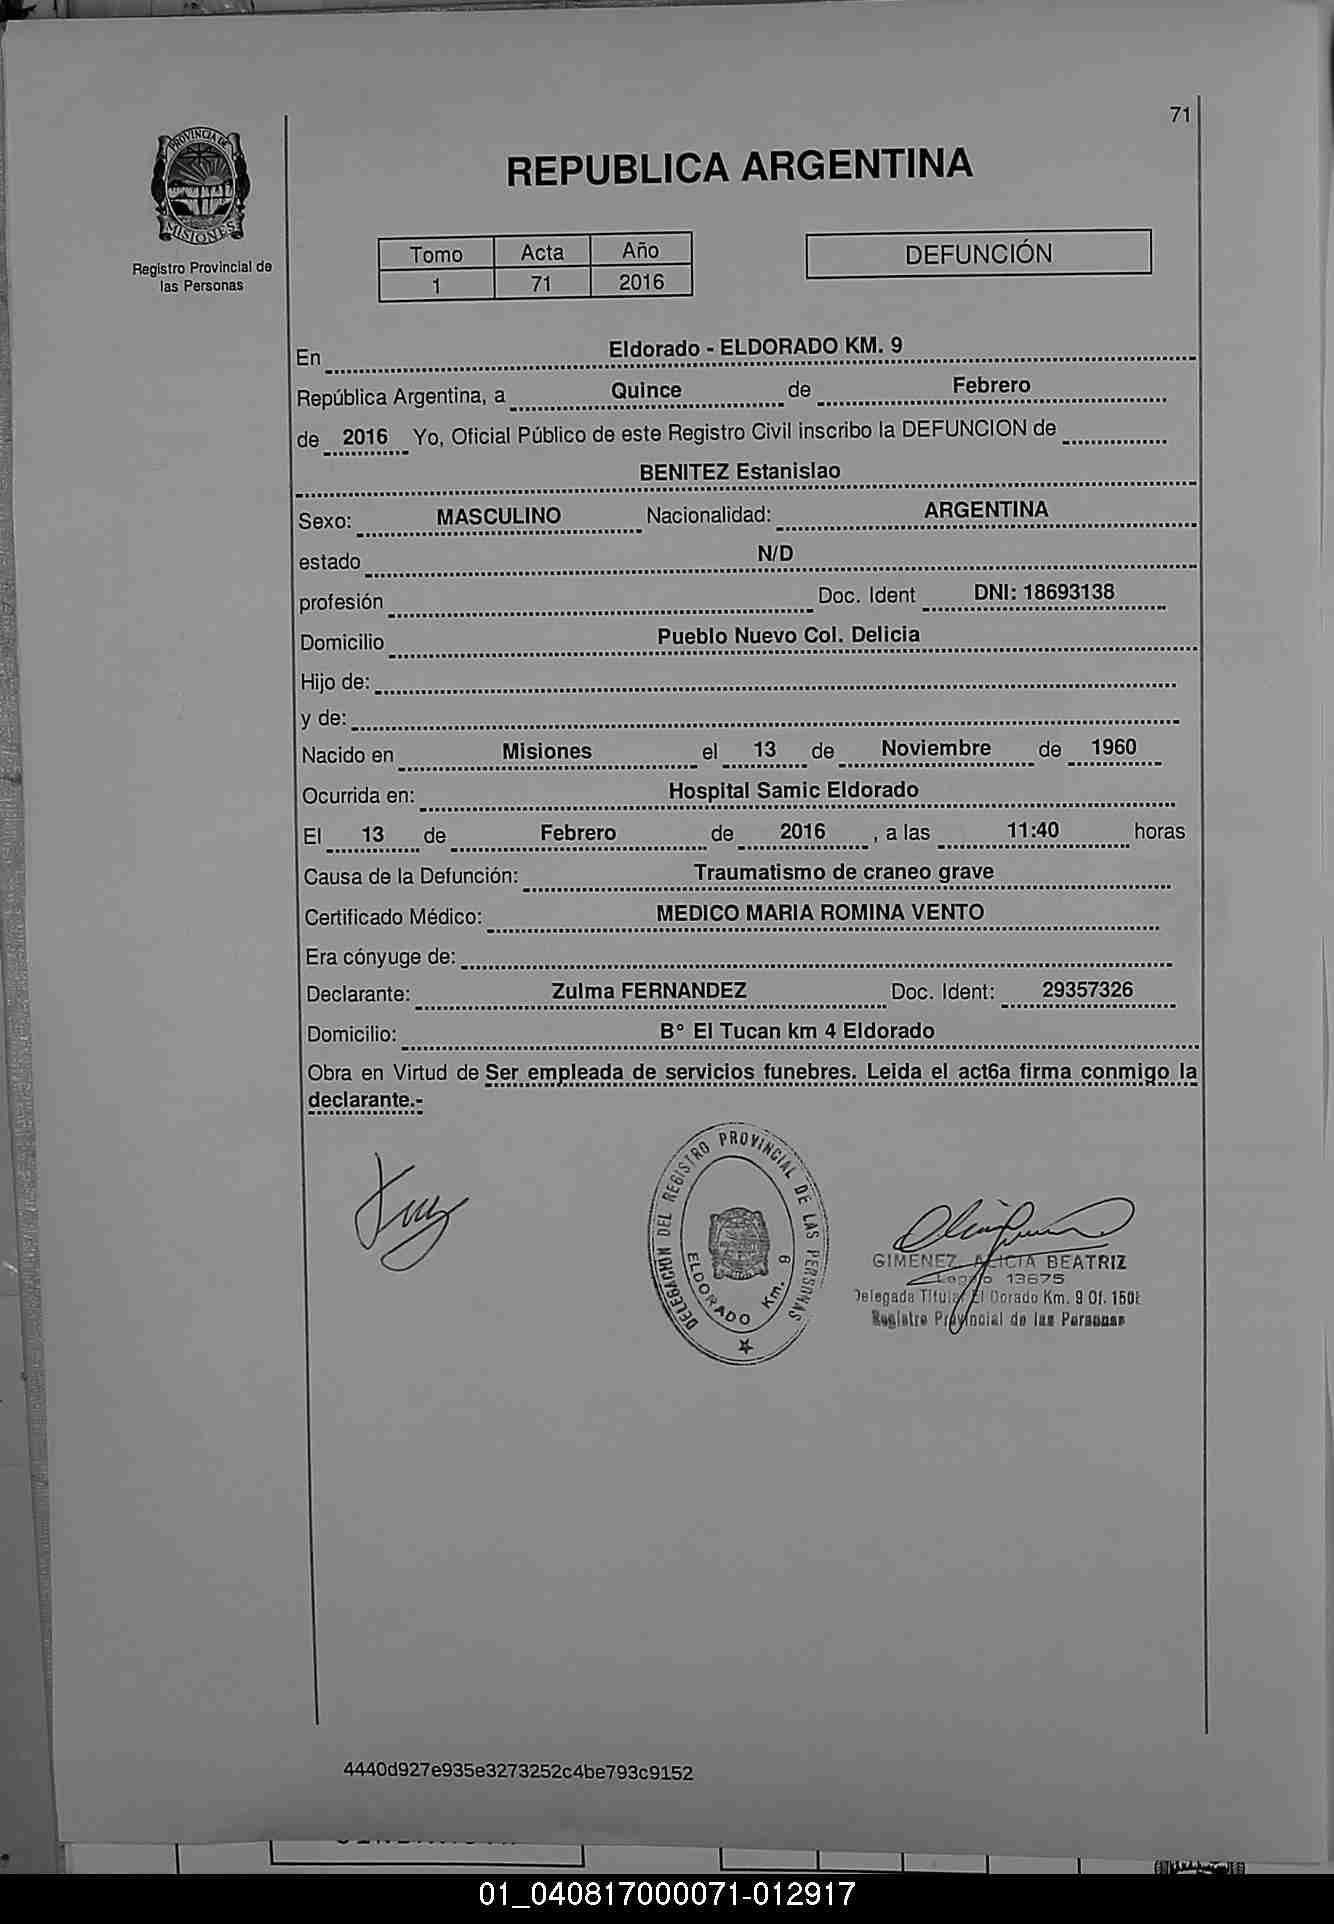 71
PROVINCIA DE
MISIONES
Registro Provincial de
las Personas
REPUBLICA ARGENTINA
Tomo Acta Año
1 71 2016
DEFUNCIÓN
En Eldorado - ELDORADO KM. 9
República Argentina, a Quince de Febrero
de 2016 Yo, Oficial Público de este Registro Civil inscribo la DEFUNCION de
BENITEZ Estanislao
Sexo: MASCULINO Nacionalidad: ARGENTINA
estado N/D
profesión Doc. Ident DNI: 18693138
Domicilio Pueblo Nuevo Col. Delicia
Hijo de:
y de:
Nacido en Misiones el 13 de Noviembre de 1960
Ocurrida en: Hospital Samic Eldorado
El 13 de Febrero de 2016 , a las 11:40 horas
Causa de la Defunción: Traumatismo de craneo grave
Certificado Médico: MEDICO MARIA ROMINA VENTO
Era cónyuge de:
Declarante: Zulma FERNANDEZ Doc. Ident: 29357326
Domicilio: B° El Tucan km 4 Eldorado
Obra en Virtud de Ser empleada de servicios funebres. Leida el act6a firma conmigo la
declarante.-
DELEGACION DEL REGISTRO PROVINCIAL DE LAS PERSONAS
ELDORADO Km. 9
GIMENEZ, ALICIA BEATRIZ
Legajo 13675
Delegada Titular El Dorado Km. 9 Of. 1508
Registro Provincial de las Personas
4440d927e935e3273252c4be793c9152
01_040817000071-012917